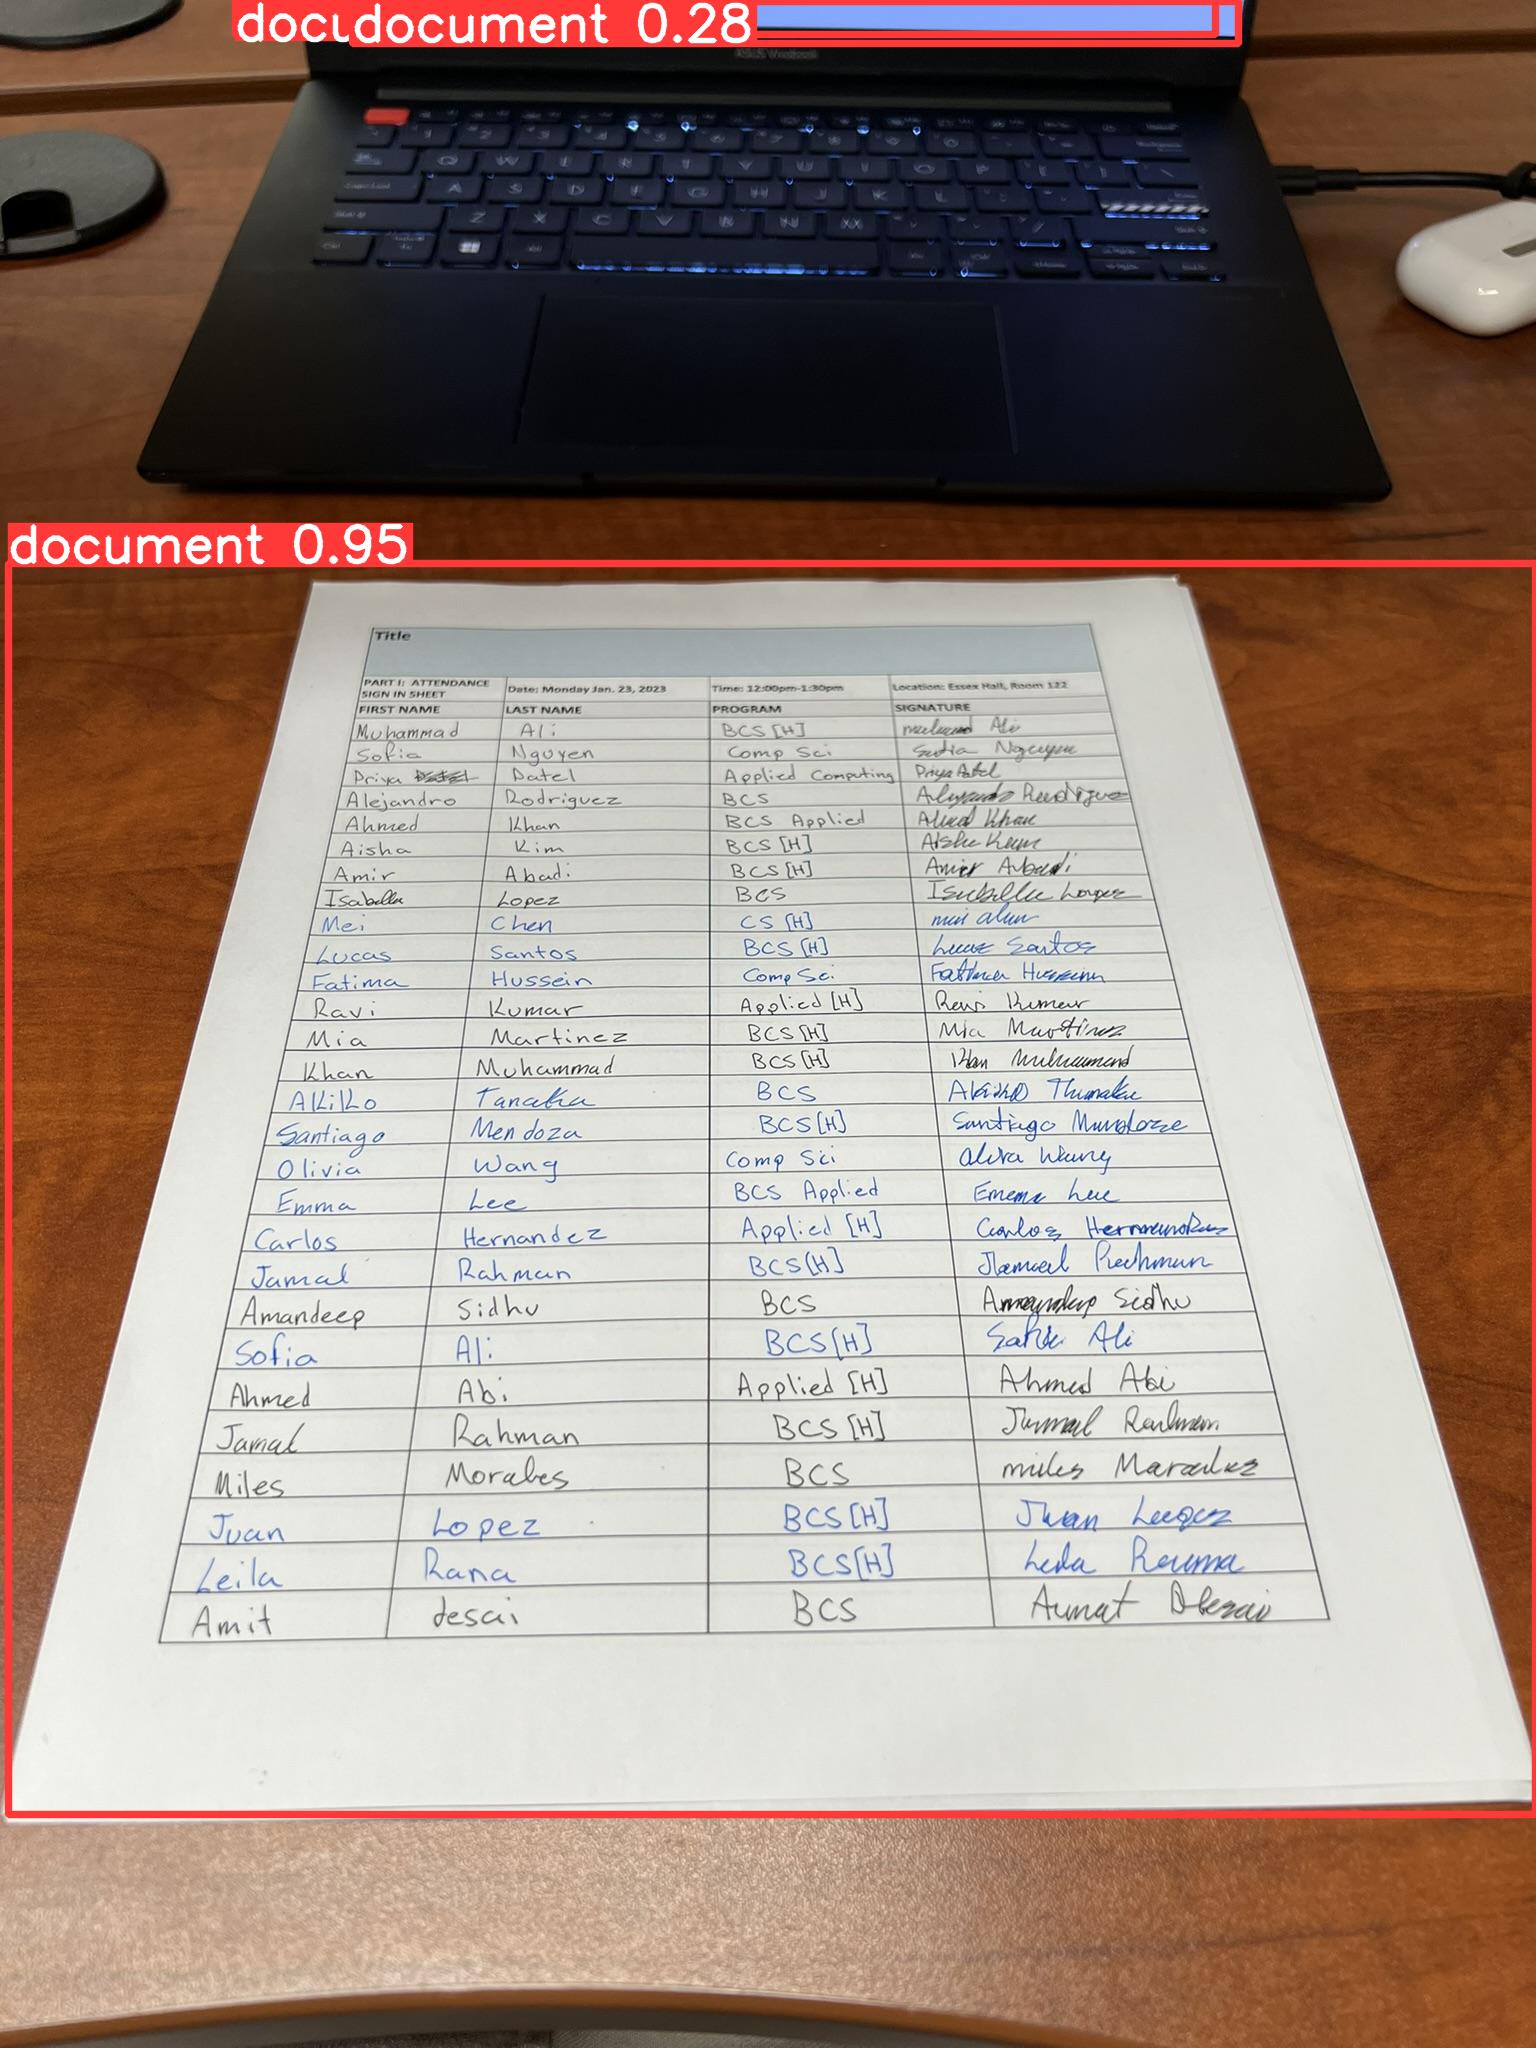 document 0.28
document 0.95
Title
PART I: ATTENDANCE SIGN IN SHEET Date: Monday Jan. 23, 2023 Time: 12:00pm-1:30pm Location: Essex Hall, Room 122
FIRST NAME LAST NAME PROGRAM SIGNATURE
Muhammad Ali BCS [H] Ali
Sofia Nguyen Comp Sci Nguyen
Priya Patel Applied Computing Priya Patel
Alejandro Rodriguez BCS Alejandro Rodriguez
Ahmed Khan BCS Applied Ahmed Khan
Aisha Kim BCS [H] Aisha Kim
Amir Abadi BCS [H] Amir Abadi
Isabella Lopez BCS Isabella Lopez
Mei Chen CS [H]
Lucas Santos BCS [H] Lucas Santos
Fatima Hussein Comp Sci Fatima Hussein
Ravi Kumar Applied [H] Ravi Kumar
Mia Martinez BCS [H] Mia Martinez
Khan Muhammad BCS [H] Khan Muhammad
Akiko Tanaka BCS Akiko
Santiago Mendoza BCS [H] Santiago
Olivia Wang Comp Sci Wang
Emma Lee BCS Applied Emma Lee
Carlos Hernandez Applied [H] Carlos Hernandez
Jamal Rahman BCS [H] Jamal Rahman
Amandeep Sidhu BCS Amandeep Sidhu
Sofia Ali BCS [H] Ali
Ahmed Abi Applied [H] Ahmed Abi
Jamal Rahman BCS [H] Jamal Rahman
Miles Morales BCS miles
Juan Lopez BCS [H] Juan
Leila Rana BCS [H] Leila
Amit desai BCS